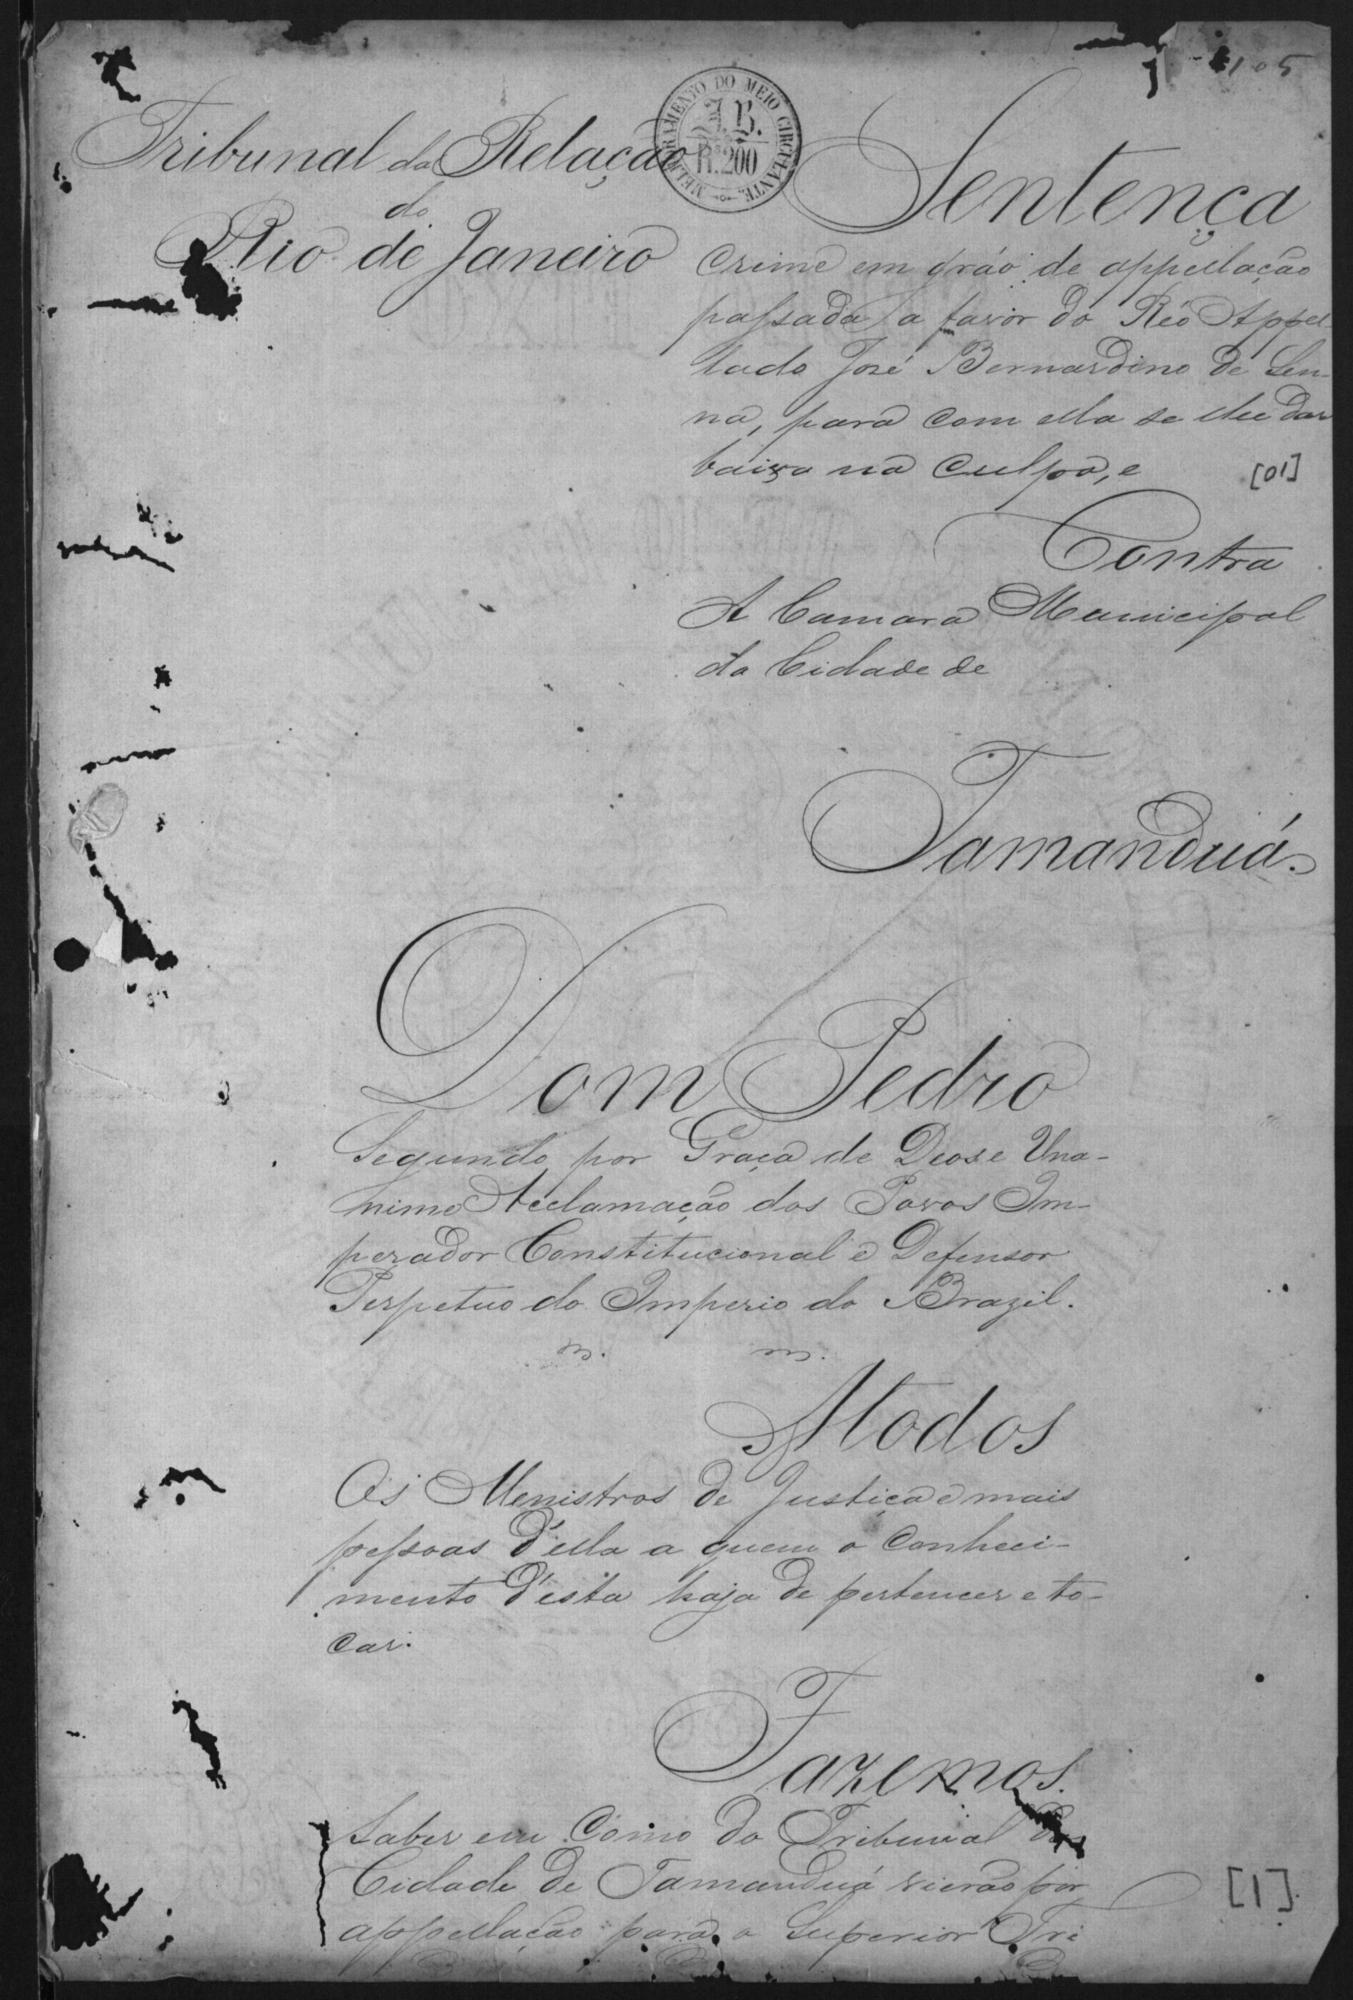 105
Tribunal da Relação
do
Rio de Janeiro
MELHORAMENTO DO MEIO CIRCULANTE
J.B.
Rs. 200
Sentença
Crime em gráo de appellação
passada a favor do Réo Appel-
lado José Bernardino de Sen-
na, para com ella se lhe dar
baixa na Culpa, e
[01]
Contra
A Camara Municipal
da Cidade de
Tamanduá.
Dom Pedro
Segundo por Graça de Deos e Una-
nime Acclamação dos Povos Im-
perador Constitucional e Defensor
Perpetuo do Imperio do Brazil.
Atodos
Os Menistros de Justiça e mais
pessoas d'ella a quem o Conheci-
mento d'esta haja de pertencer e to-
car.
Fazemos.
Saber em Como do Tribunal da
Cidade de Tamanduá vierão por
appellação para o Superior Tri
[1]